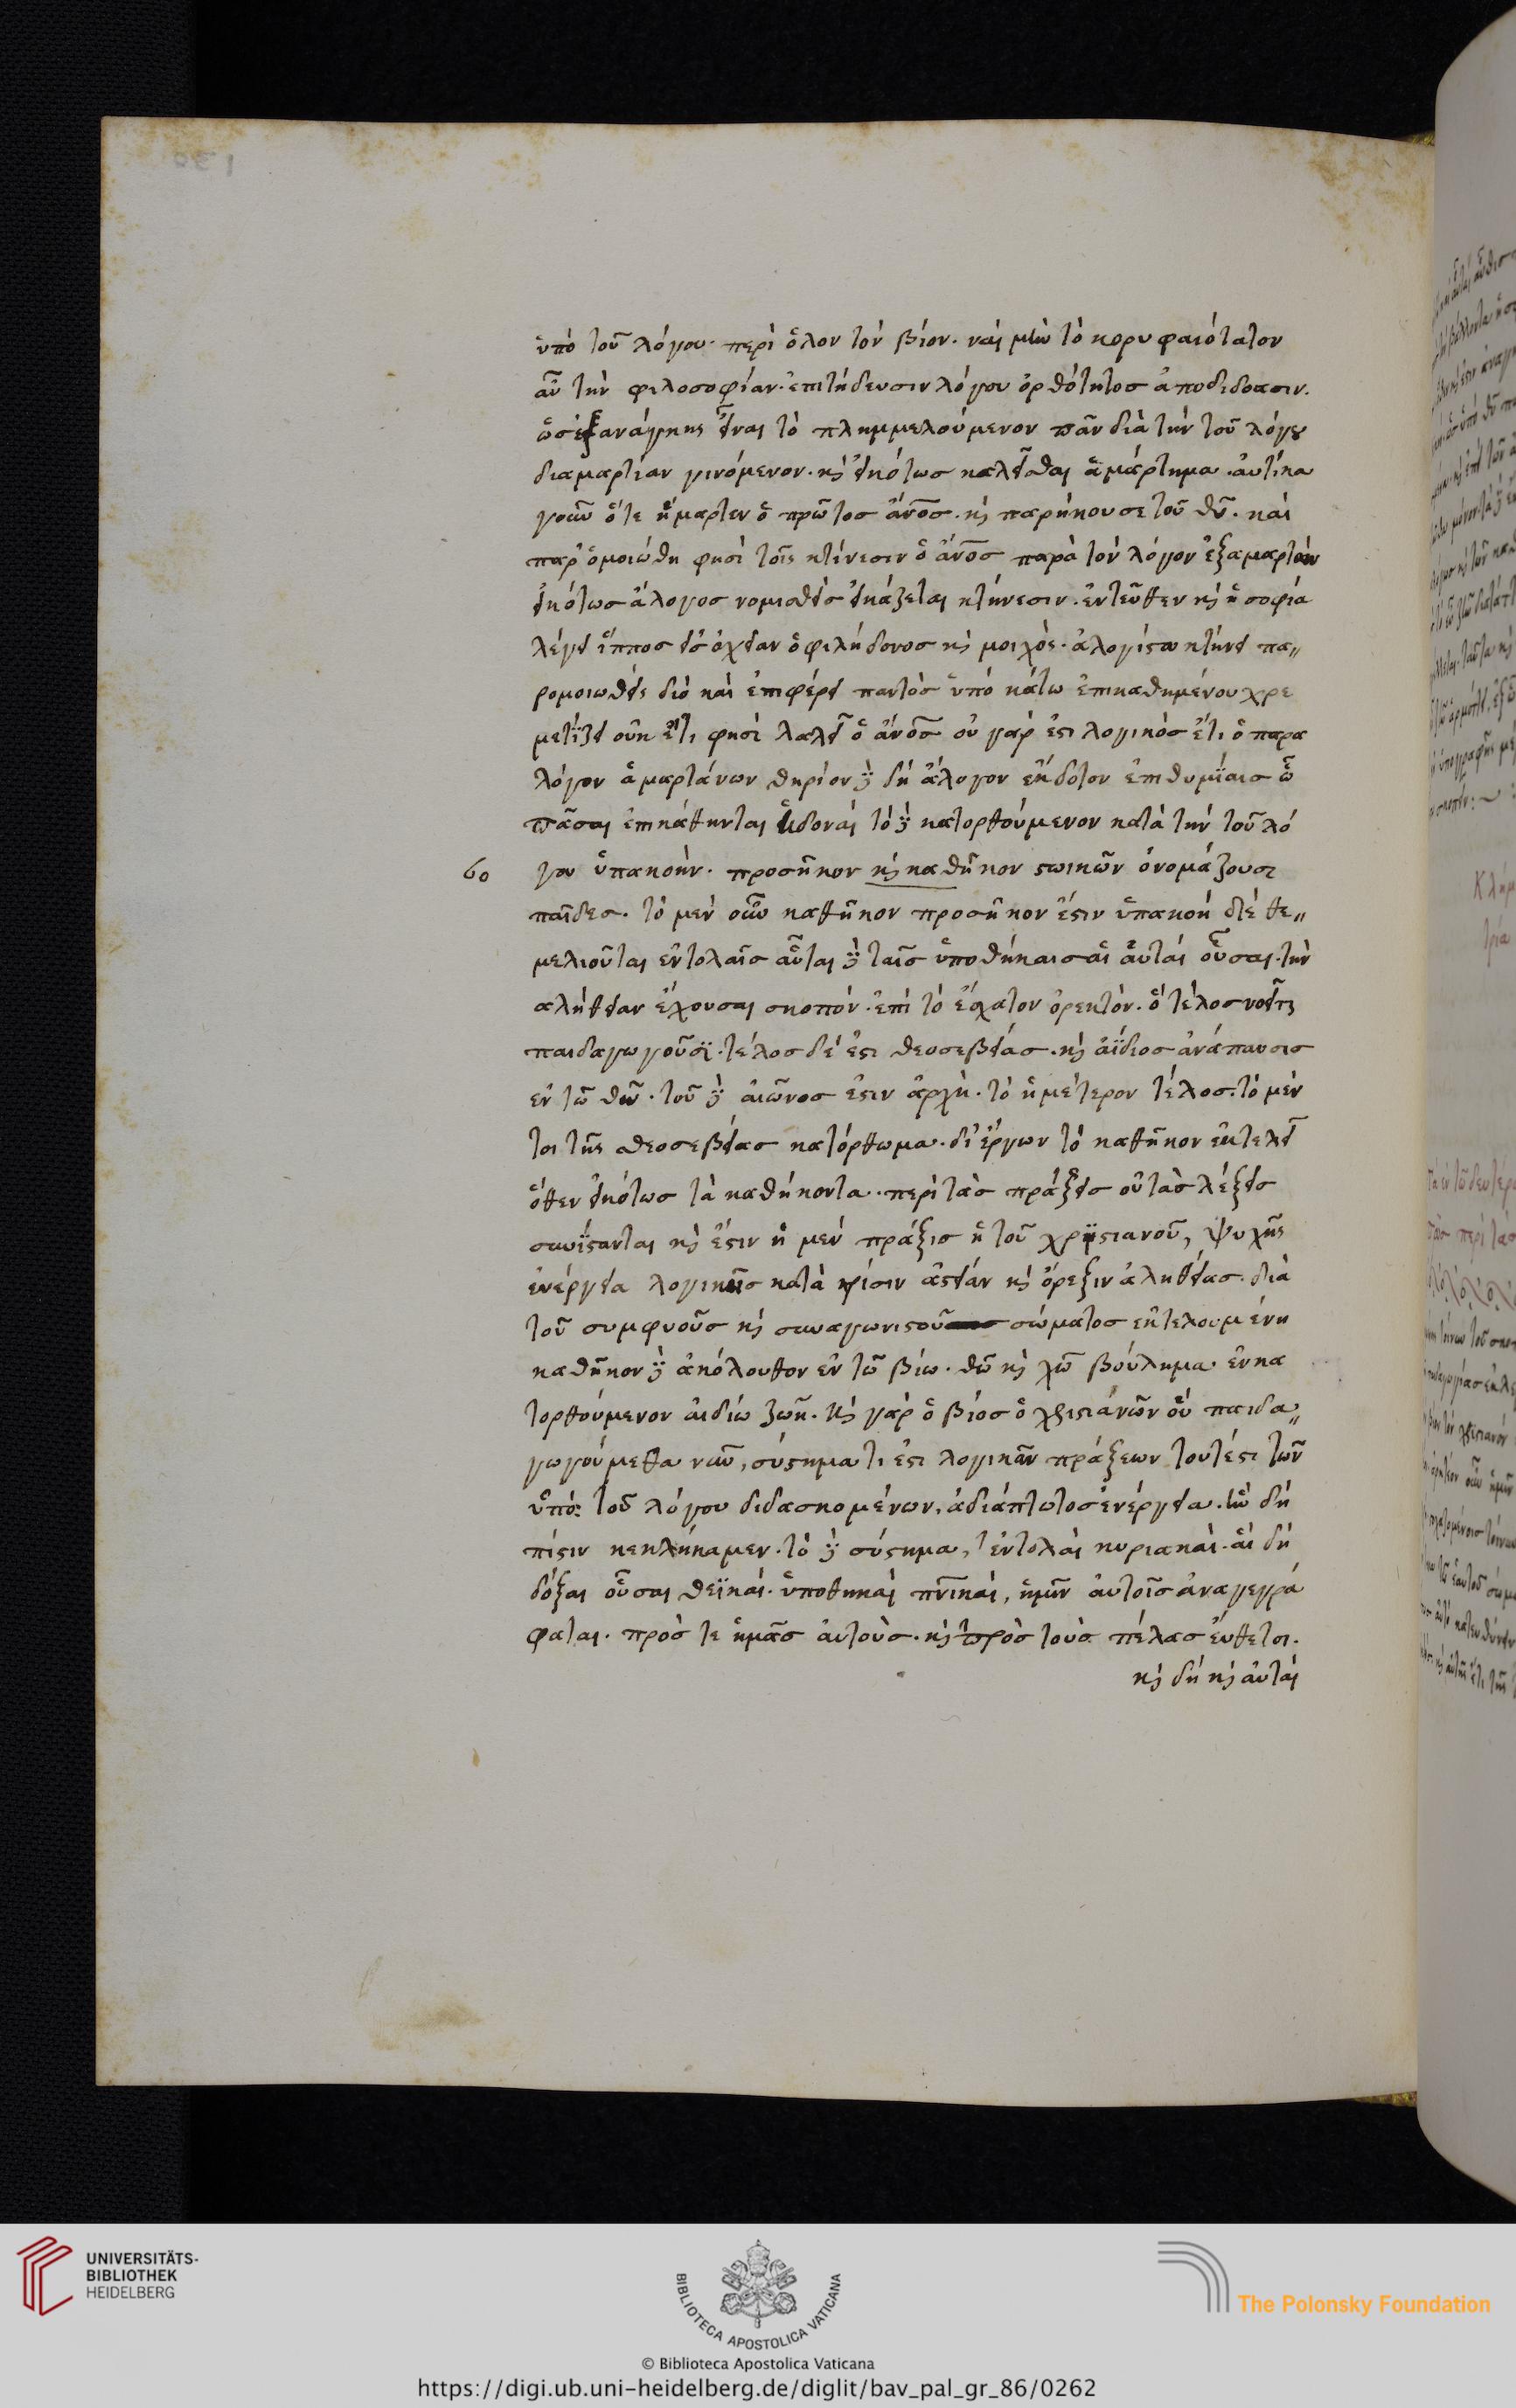 ὑπὸ τοῦ λόγου· περὶ ὅλον τὸν βίον. ναὶ μὴν τὸ κορυφαιότατον
αὖ τὴν φιλοσοφίαν· ἐπιτήδευσιν λόγου ὀρθότητος ἀποδιδοασιν.
ὥς ἐξανάγκης εἶναι τὸ πλημμελούμενον πᾶν διὰ τὴν τοῦ λόγου
διαμαρτίαν γινόμενον. κỳ εἰκότως καλεῖσθαι ἁμάρτημα. αὐτίκα
γοῦν ὅτε ἥμαρτεν ὁ πρῶτος ἄνος. κỳ παρήκουσε τοῦ θυ. καὶ
παρ' ὁμοιώθη φησὶ τοῖς κτίνεσιν ὁ ἄνος παρὰ τὸν λόγον ἐξαμαρτὼν
εἰκότως ἄλογος νομισθεὶς εἰκάζεται κτήνεσιν. ἐντεῦθεν κỳ ἡ σοφία
λέγει ἵππος εἰς ὀχείαν ὁ φιλήδονος κỳ μοιχὸς. ἀλογίςω κτήνει πα„
ρομοιωθεὶς διὸ καὶ ἐπιφέρει παντὸς ὑπὸ κάτω ἐπικαθημένου χρε
μετίζει οὐκ ἔτι φησὶ λαλεῖ ὁ ἄνος οὐ γάρ ἐςι λογικὸς ἔτι ὁ παρα
λόγον ἁμαρτάνων θηρίον δὲ δὴ ἄλογον ἔκδοτον ἐπιθυμίαις ὧ
πᾶσαι ἐπικάθηνται ἡδοναί τό δὲ κατορθούμενον κατὰ τὴν τοῦ λό
60 γου ὑπακοήν. προσῆκον κỳ καθῆκον ςωικῶν ὀνομάζουσι
παῖδες. τὸ μὲν οὖν καθῆκον προσῆκον ἔςιν ὑπακοή δι' ἑ θε„
μελιοῦται ἐντολαῖς αὗται δὲ ταῖς ὑποθήκαις αἱ αὐταί οὖσαι. τὴν
αλήθειαν ἔχουσαι σκοπόν. ἐπὶ τὸ ἔσχατον ὀρεκτὸν. ὃ τέλος νοεῖται
παιδαγωγοῦσϊ. τέλος δέ ἐςι θεοσεβείας. κỳ ἀΐδιος ἀνάπαυσις
ἐν τῶ θω. τοῦ δὲ αἰῶνος ἐςιν ἀρχὴ. τὸ ἡμέτερον τέλος. τὸ μέν
τοι τῆς θεοσεβείας κατόρθωμα. δι' ἔργων τὸ καθῆκον ἐκτελεῖ
ὅθεν εἰκότως τὰ καθήκοντα. περὶ τὰς πράξεις οὐ τὰς λέξεις
συνίςανται κỳ ἔςιν ἡ μὲν πράξις ἡ τοῦ χρηςιανοῦ, ψυχῆς
ἐνέργεια λογικῆς κατὰ κρίσιν ἀςείαν κỳ ὄρεξιν ἀληθείας. διὰ
τοῦ συμφυοῦς κỳ συναγωνιςοῦ σώματος ἐκτελουμένη
καθῆκον δὲ ἀκόλουθον ἐν τῶ βίω. θω κỳ χω βούλημα ἐν κα
τορθούμενον ἀιδίω ζωῆ. κỳ γὰρ ὁ βίος ὁ χριςιανῶν ὃν παιδα„
γωγούμεθα νῦν, σύςημα τι ἐςι λογικῶν πράξεων τουτέςι τῶν
ὑπὸ τοῦ λόγου διδασκομένων, ἀδιάπτωτος ἐνέργεια. ἣν δὴ
πίςιν κεκλήκαμεν. τὸ δὲ σύςημα, ἐντολαὶ κυριακαὶ. αἳ δὴ
δόξαι οὖσαι θεϊκαὶ. ὑποθηκαὶ πνικαὶ, ἡμῖν αὐτοῖς ἀναγεγρά
φαται. πρὸς τε ἡμᾶς αὐτοὺς. κỳ πρὸς τοὺς πέλας εὔθετοι.
κỳ δὴ κỳ αὐταὶ
UNIVERSITÄTS-
BIBLIOTHEK
HEIDELBERG
BIBLIOTECA APOSTOLICA VATICANA
The Polonsky Foundation
© Biblioteca Apostolica Vaticana
https://digi.ub.uni-heidelberg.de/diglit/bav_pal_gr_86/0262